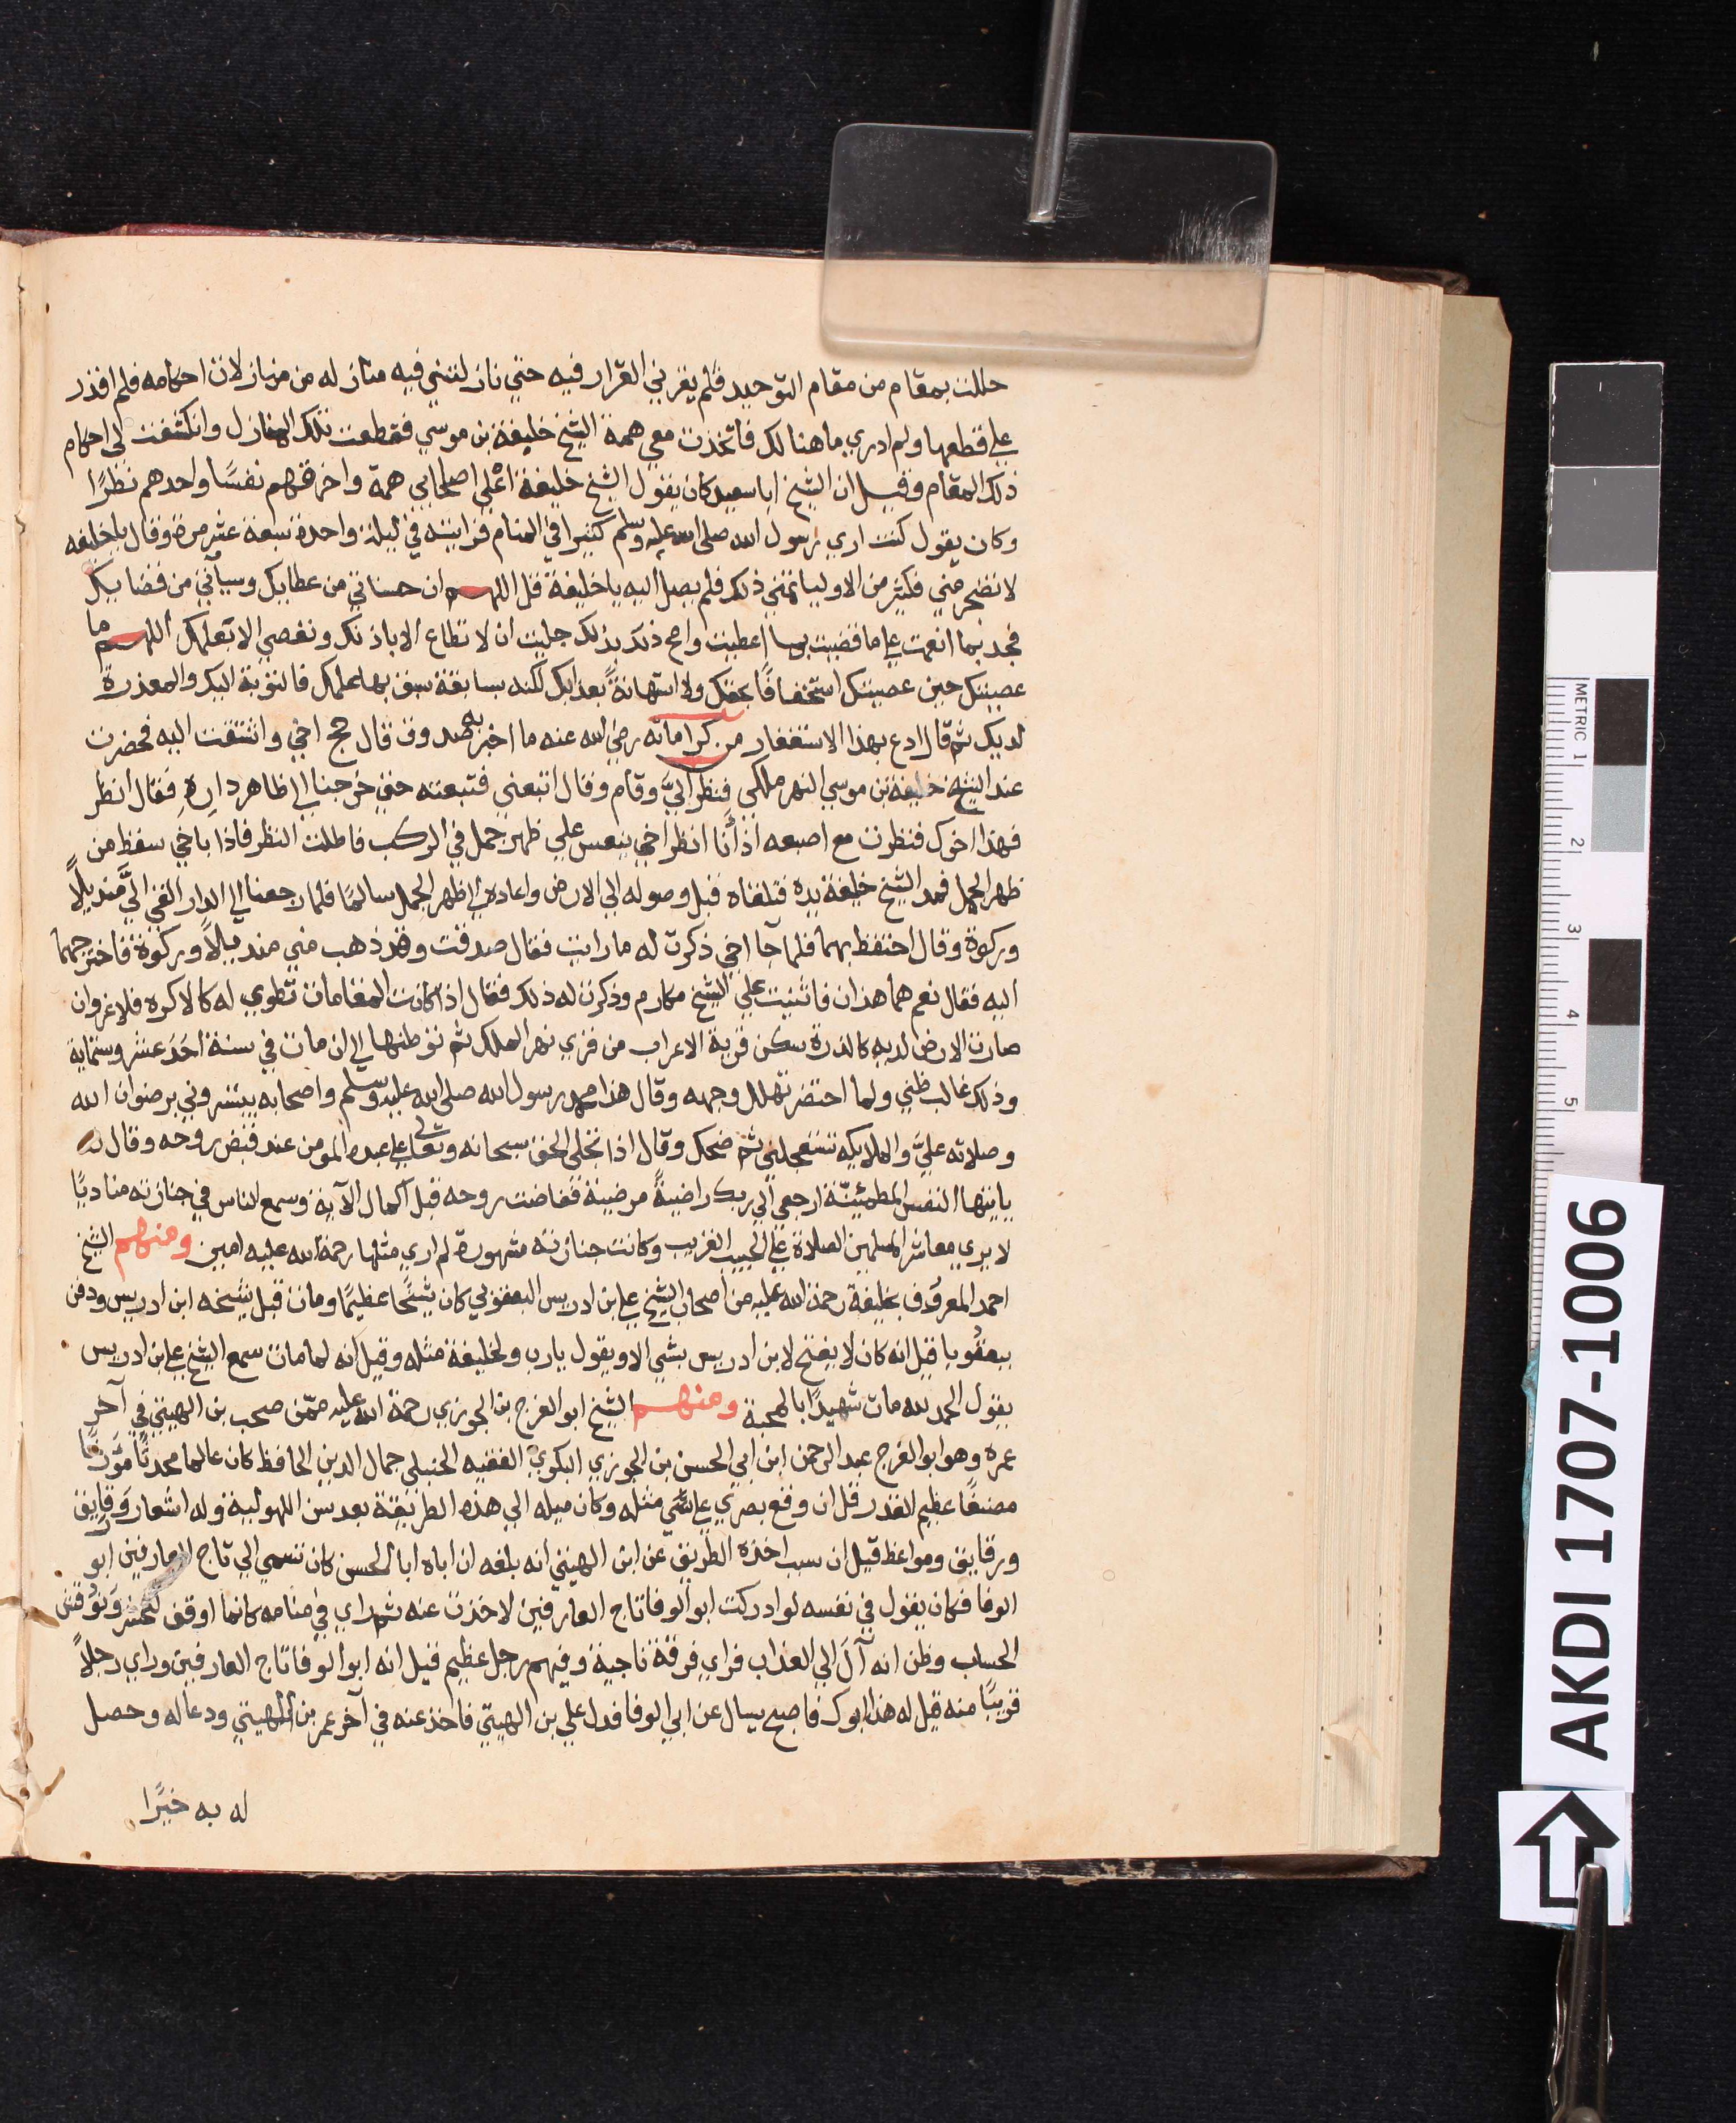 حللت بمقام من مقام التوحيد فلم يقربني القرار فيه حتي نازلتني فيه منازله من منازلات احكامه فلم اقدر
علي قطعها ولم ادري ما هنالك فاتخذت معي همة الشيخ خليفة بن موسي فقطعت تلك المنازل وانكشفت لي احكام
ذلك المقام وقيل ان الشيخ ابا سعيد كان يقول الشيخ خليفة اعلي اصحابي همة واخرقهم نفسًا واحدهم نظرًا
وكان يقول كنت اري رسول الله صلى الله عليه وسلم كثيرا في المنام فرايته في ليلة واحدة سبعة عشر مرة وقال يا خليفه
لا تضجر مني فكثير من الاوليا تمني ذلك فلم يصل اليه يا خليفة قل اللهم ان حسناتي من عطايك وسياتي من قضايك
فجد بما انعمت علي ما قضيت اعطيت وامح ذلك بذلك جليت ان لا تطاع الا باذنك وتعصي الا بعلمك اللهم ما
عصيتك حين عصيتك استخفافًا بحقك ولا استهانةً بعذابك لكنه بسابقة سبق بها علمك فالتوبة اليك والمعذرة
لديك ثم قال ادع بهذا الاستغفار من كراماته رضي الله عنه ما اخبر به صدوق قال حج اخي واشتقت اليه فحضرت
عند الشيخ خليفة بن موسي النهر ملكي فنظر اليّ وقام وقال اتبعني فتبعته حتي خرجنا الي ظاهر داره فقال انظر
فهذا اخوك فنظرت مع اصبعه اذ أنا انظر اخي ينعس علي ظهر جمل في الركب فاطلت النظر فاذا باخي سقط من
ظهر الجمل فمد الشيخ خليفة يده فتلقاه قبل وصوله الي الارض واعاده الي ظهر الجمل سالمًا فلما رجعنا الي الدار القي اليّ منديلًا
وركوة وقال احتفظ بهما فلما جآ اخي ذكرت له ما رايت فقال صدقت وقد ذهب مني منديلًا وركوة فاخترجهما
اليه فقال نعم هما هذان فاثنيت علي الشيخ مكارم وذكرت له ذلك فقال اذا كانت المقامات تطوي له كالاكره فلا غرو ان
صارت الارض لديه كالذرة سكن قرية الاعراب من قري نهر الملك ثم توطنها الي ان مات في سنة احَدَ عشر وستماية
وذلك غالب ظني ولما احتضر تهلل وجهه وقال هذا محمد رسول الله صلى الله عليه وسلم واصحابه يبشروني برضوان الله
وصلاته عليّ والملايكه تستعجلني ثم ضحك وقال اذا تجلى الحق سبحانه وتعالى علي عبده المومن عند قبض روحه وقال له
يا ايتها النفس المطمئنّة ارجعي الي ربك راضيةً مرضية ففاضت روحه قبل اكمال الآية وسمع الناس في جنازته مناديًا
لا يري معاشر المسلمين الصلاة علي الحبيب الغريب وكانت جنازته مشهورة لم اري مثلها رحمة الله عليه امين ومنهم الشيخ
احمد المعروف بخليفة رحمة الله عليه من اصحاب الشيخ علي ابن ادريس اليعقوبي كان شيخًا عظيمًا ومات قبل شيخه ابن ادريس ودفن
ببعقُوبا قيل انه كان لا يفتح لابن ادريس بشي الا ويقول يا رب ولخليفة مثله وقيل انه لما مات سمع الشيخ علي ابن ادريس
يقول الحمد لله مات شهيدًا بالمحبة ومنهم الشيخ ابو الفرج بن الجوزي رحمة الله عليه ممّن صحب بن الهيتي في آخر
عمره وهو ابو الفرج عبد الرحمن ابن ابي الحسن بن الجوزي البكوي الفقيه الحنبلي جمال الدين الحافظ كان عالما محدثًا مؤرخًا
مصنفًا عظيم القدر قل ان وقع بصري علي شي مثله وكان ميله الي هذه الطريقة بعد سن اللهولية وله اشعار وَرقايق
ورقايق ومواعظ قيل ان سبب اخذه الطريق عن ابن الهيتي انه بلغه ان اباه ابا الحسن كان تسمي الي تاج العارفين ابو
الوفا فكان يقول في نفسه لو ادركت ابو الوفا تاج العارفين لاخذت عنه ثم راي في منامه كانما اوقف ونوقش
الحساب وظن انه آلَ الي العذاب فراي فرقة ناجية وفيهم رجل عظيم قيل انه ابو الوفا تاج العارفين وراي رجلًا
قريبًا منه قيل له هذا ابوك فاصبح يسال عن ابي الوفا فدل علي بن الهيتي فاخذ عنه في آخر عمر بن الهيتي ودعا له وحصل
له به خيرًا
AKDI 1707-1006
METRIC 1 2 3 4 5